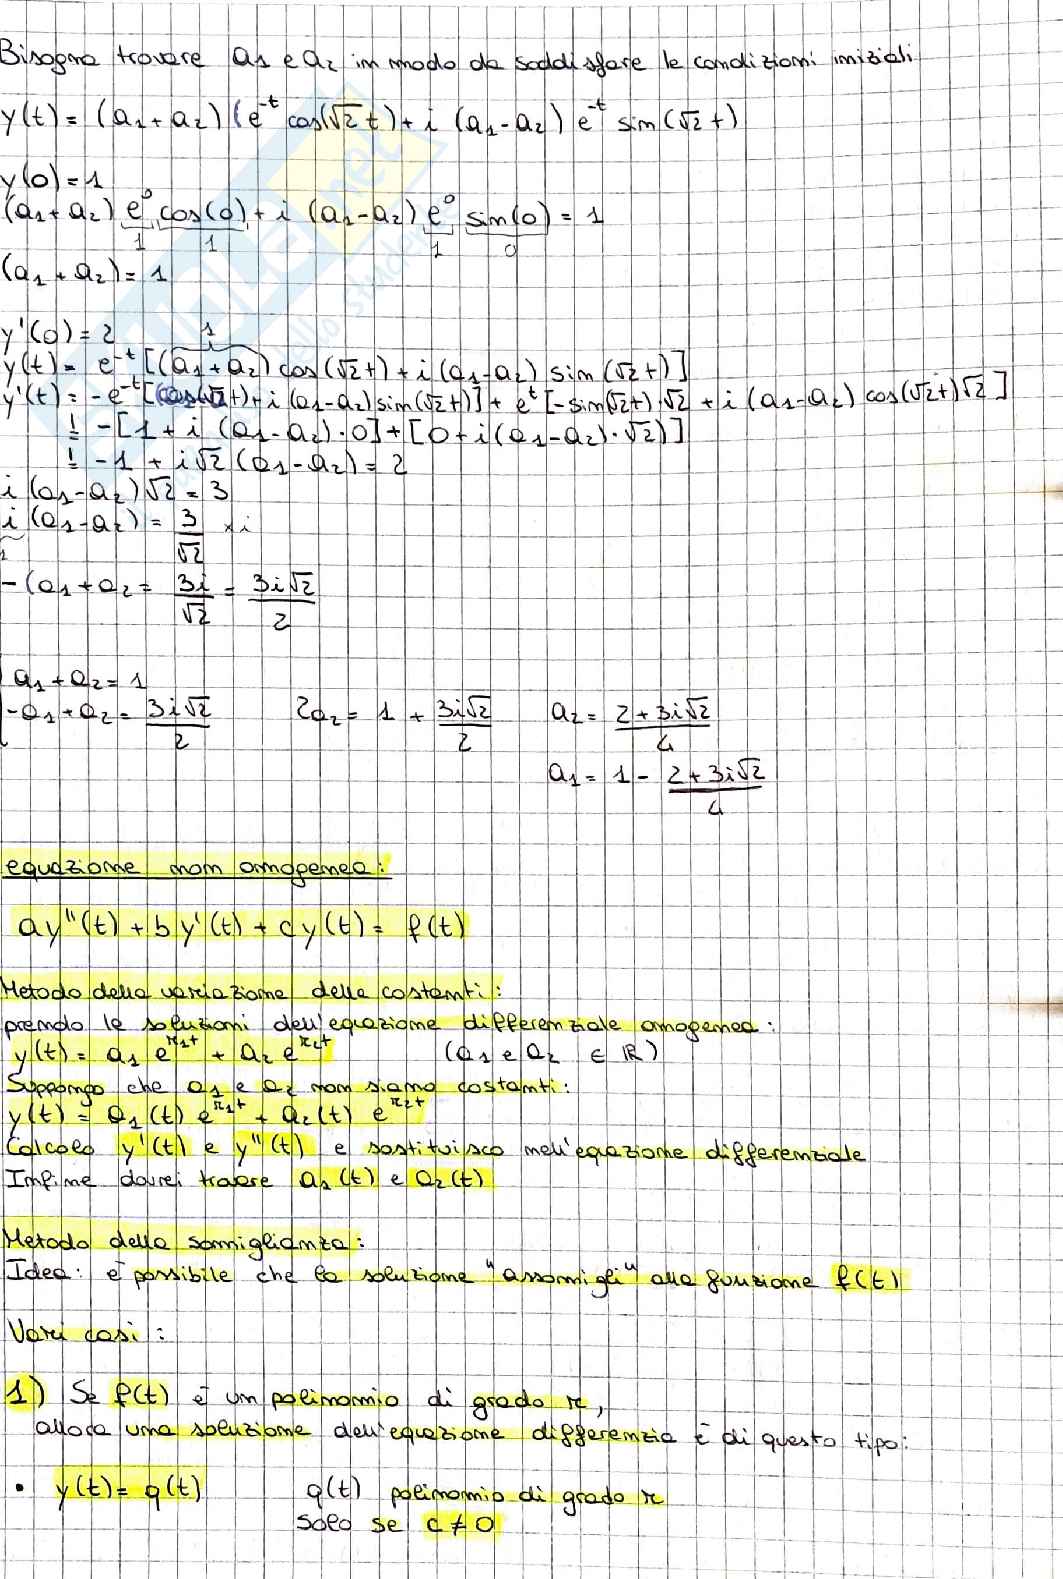 Bisogna trovare a₁ e a₂ in modo da soddisfare le condizioni iniziali
y(t) = (a₁ + a₂) (e^-t cos(√2 t) + i (a₁ - a₂) e^-t sin(√2 t)
y(0) = 1
(a₁ + a₂) e⁰ cos(0) + i (a₁ - a₂) e⁰ sin(0) = 1
1 1 1 0
(a₁ + a₂) = 1
y'(0) = 2
1
y(t) = e^-t [(a₁ + a₂) cos(√2 t) + i (a₁ - a₂) sin(√2 t)]
y'(t) = -e^-t [(cos(√2 t) + i (a₁ - a₂) sin(√2 t)] + e^t [-sin(√2 t)·√2 + i (a₁ - a₂) cos(√2 t) √2]
! = -[1 + i (a₁ - a₂)·0] + [0 + i (a₁ - a₂)·√2)]
! = -1 + i√2 (a₁ - a₂) = 2
i (a₁ - a₂) √2 = 3
i (a₁ - a₂) = 3/√2 × i
-(a₁ + a₂ = 3i/√2 = 3i√2/2
a₁ + a₂ = 1
-a₁ + a₂ = 3i√2/2 2a₂ = 1 + 3i√2/2 a₂ = 2 + 3i√2/4
a₁ = 1 - 2 + 3i√2/4
equazione non omogenea:
ay''(t) + by'(t) + cy(t) = f(t)
Metodo della variazione delle costanti:
prendo le soluzioni dell'equazione differenziale omogenea:
y(t) = a₁ e^r₁t + a₂ e^r₂t (a₁ e a₂ ∈ ℝ)
Suppongo che a₁ e a₂ non siano costanti:
y(t) = a₁(t) e^r₁t + a₂(t) e^r₂t
Calcolo y'(t) e y''(t) e sostituisco nell'equazione differenziale
Infine dovrei trovare a₁(t) e a₂(t)
Metodo della somiglianza:
Idea: è possibile che la soluzione "assomigli" alla funzione f(t)
Vari casi:
1) Se f(t) è un polinomio di grado r,
allora una soluzione dell'equazione differenzia è di questo tipo:
• y(t) = q(t) q(t) polinomio di grado r
solo se c ≠ 0